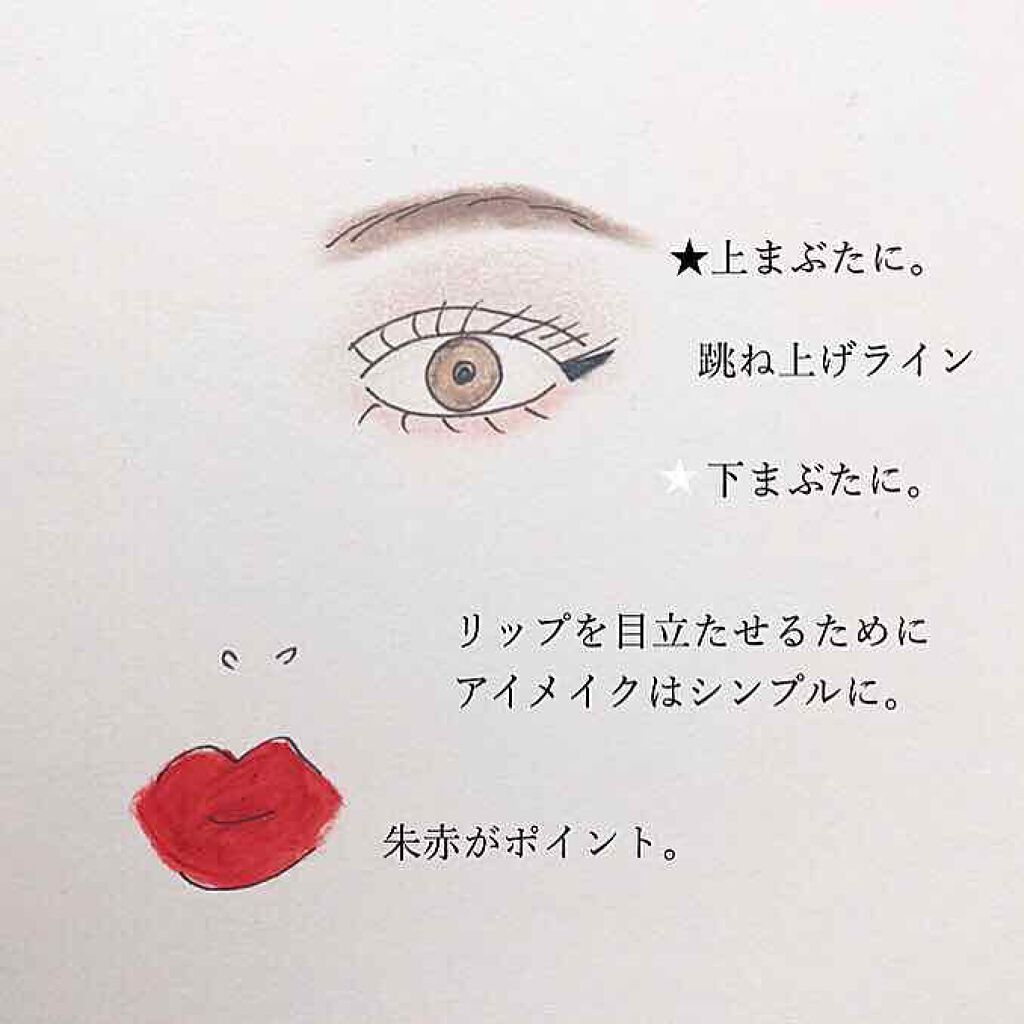 ★上まぶたに。
跳ね上げライン
★下まぶたに。
リップを目立たせるために
アイメイクはシンプルに。
朱赤がポイント。